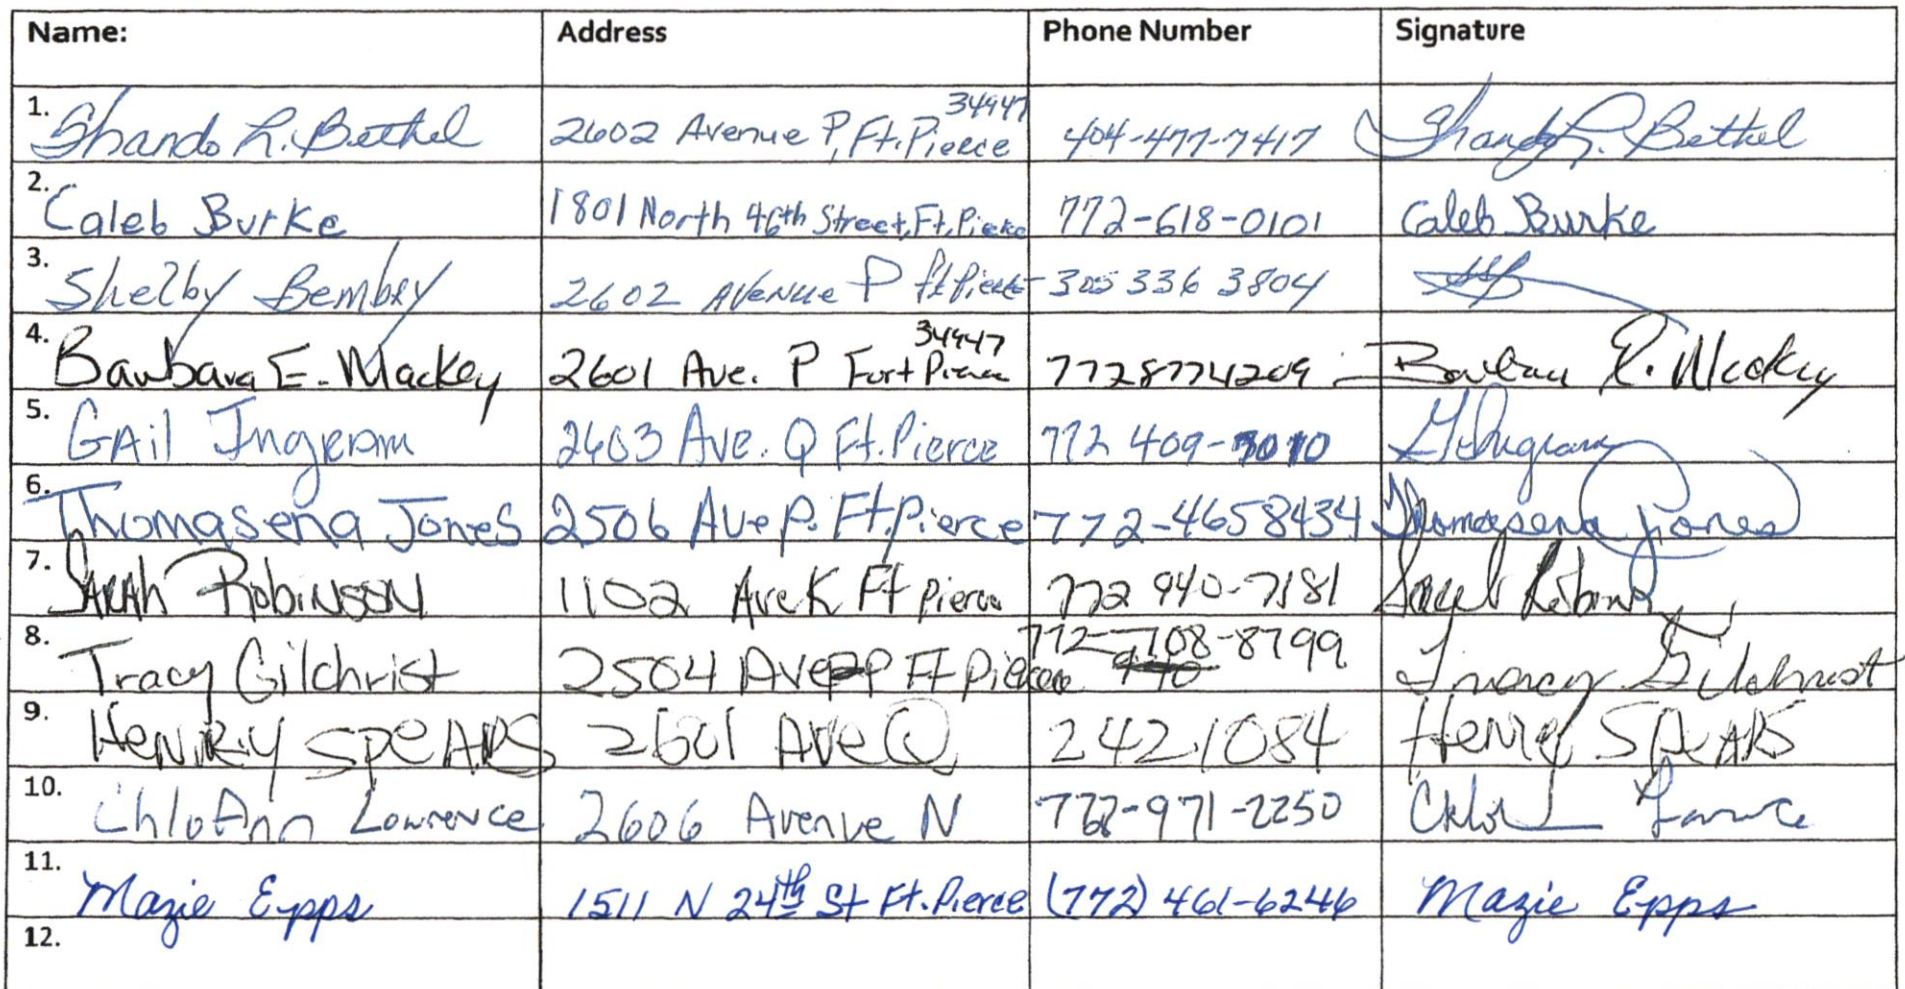 Name: Address Phone Number Signature
1. Shando L. Bethel 2602 Avenue P, Ft. Pierce 34947 404-477-7417 Shando L. Bethel
2. Caleb Burke 1801 North 46th Street, Ft. Pierce 772-618-0101 Caleb Burke
3. Shelby Bembry 2602 Avenue P ft Pierce 305 336 3804
4. Barbara E. Mackey 2601 Ave. P Fort Pierce 34947 7728774209 Barbara E. Mackey
5. GAil Ingram 2603 Ave. Q Ft. Pierce 772 409-7010 G Ingram
6. Thomasena Jones 2506 Ave P. Ft. Pierce 772-4658434 Thomasena Jones
7. SARAh RobiNSON 1102 Ave K Ft Pierce 772 940-7181 Sarah Robinson
8. Tracy Gilchrist 2504 Ave P Ft Pierce 772-708-8799 Tracy Gilchrist
9. HeNRy SpeARS 2601 Ave Q 242 1084 Henry SpeARS
10. ChloAnn Lowrence 2606 Avenue N 772-971-2250
11. Mazie Epps 1511 N 24th St Ft. Pierce (772) 461-6246 Mazie Epps
12.